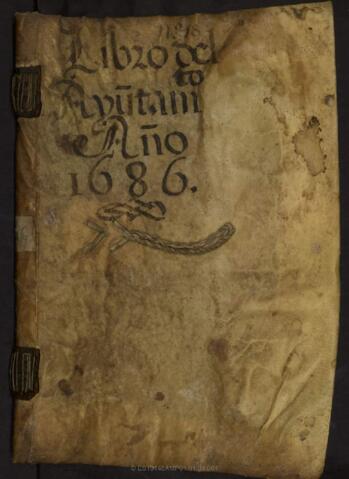 Libro del
Ayũtam to
Año
1686.